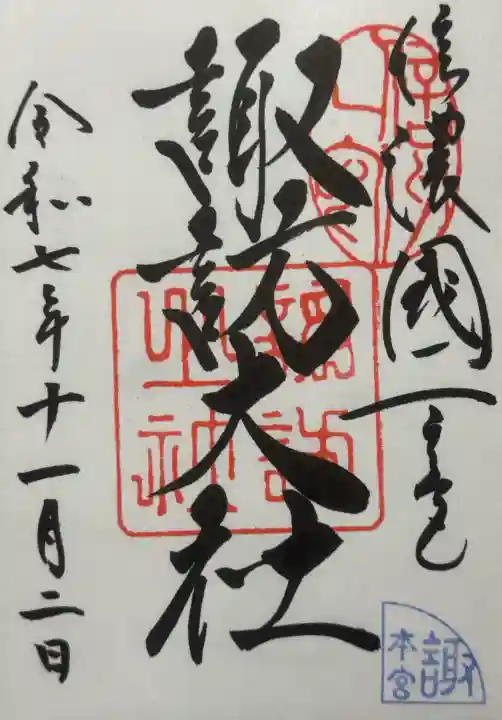 信濃國一之宮
諏訪大社
令和七年十一月二日
諏
本宮